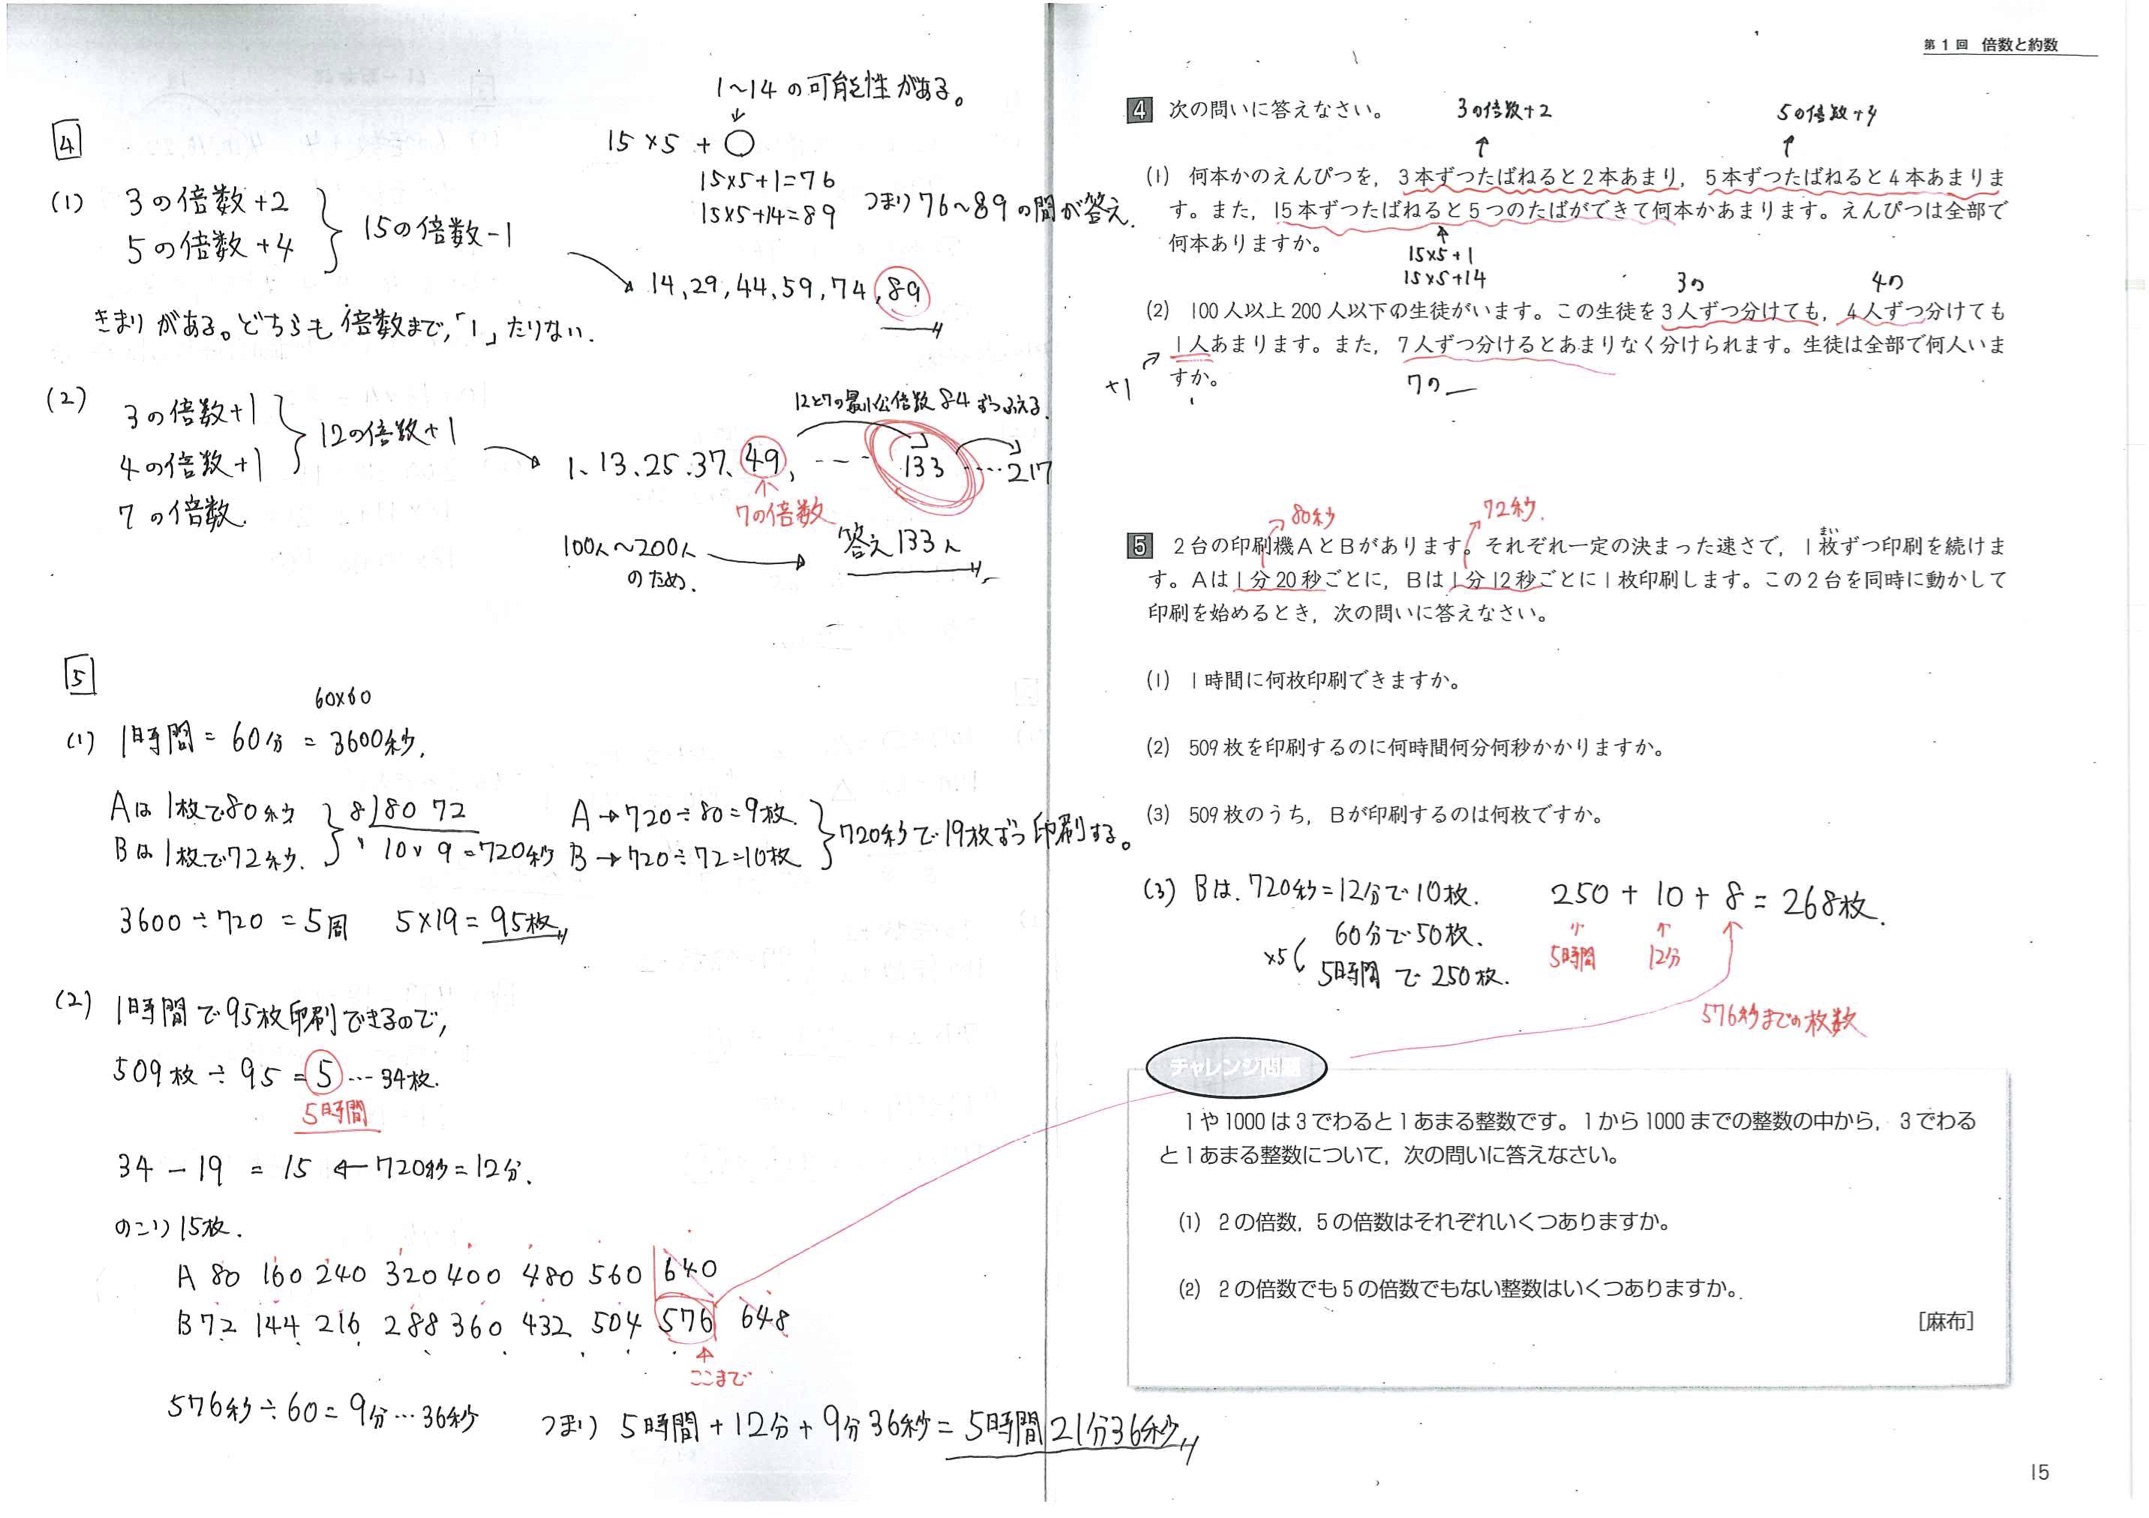 4
1〜14の可能性がある。
↓
15×5+○
15×5+1=76
15×5+14=89
つまり76〜89の間が答え.
(1) 3の倍数+2
5の倍数+4
15の倍数-1
→ 14, 29, 44, 59, 74, 89
きまりがある。どちらも倍数まで,「1」たりない.
(2) 3の倍数+1
4の倍数+1
7の倍数.
12の倍数+1
12と7の最小公倍数84ずつふえる.
→ 1、13.25.37、49, --- 133 ....217
↑
7の倍数
100人〜200人 → 答え 133人
のため.
5
60×60
(1) 1時間=60分=3600秒.
Aは1枚で80秒
Bは1枚で72秒.
8)80 72
10 × 9 =720秒
A→720÷80=9枚.
B→720÷72=10枚
720秒で19枚ずつ印刷する。
3600÷720=5周 5×19=95枚
(2) 1時間で95枚印刷できるので,
509枚÷95=5…34枚.
5時間
34-19=15 ←720秒=12分.
のこり15枚.
A 80 160 240 320 400 480 560 640
B 72 144 216 288 360 432 504 576 648
↑
ここまで
576秒÷60=9分…36秒 つまり 5時間+12分+9分36秒=5時間21分36秒
第1回 倍数と約数
4 次の問いに答えなさい。
3の倍数+2 5の倍数+4
↑ ↑
(1) 何本かのえんぴつを,3本ずつたばねると2本あまり,5本ずつたばねると4本あまりま
す。また,15本ずつたばねると5つのたばができて何本かあまります。えんぴつは全部で
何本ありますか。
↑
15×5+1
15×5+14
3の 4の
(2) 100人以上200人以下の生徒がいます。この生徒を3人ずつ分けても,4人ずつ分けても
1人あまります。また,7人ずつ分けるとあまりなく分けられます。生徒は全部で何人いま
すか。
+1
7の
80秒 72秒.
まい
5 2台の印刷機AとBがあります。それぞれ一定の決まった速さで,1枚ずつ印刷を続けま
す。Aは1分20秒ごとに,Bは1分12秒ごとに1枚印刷します。この2台を同時に動かして
印刷を始めるとき,次の問いに答えなさい。
(1) 1時間に何枚印刷できますか。
(2) 509枚を印刷するのに何時間何分何秒かかりますか。
(3) 509枚のうち,Bが印刷するのは何枚ですか。
(3) Bは.720秒=12分で10枚. 250+10+8=268枚.
60分で50枚.
×5
5時間で250枚.
5時間 12分
576秒までの枚数
チャレンジ問題
1や1000は3でわると1あまる整数です。1から1000までの整数の中から,3でわる
と1あまる整数について,次の問いに答えなさい。
(1) 2の倍数,5の倍数はそれぞれいくつありますか。
(2) 2の倍数でも5の倍数でもない整数はいくつありますか。
[麻布]
15